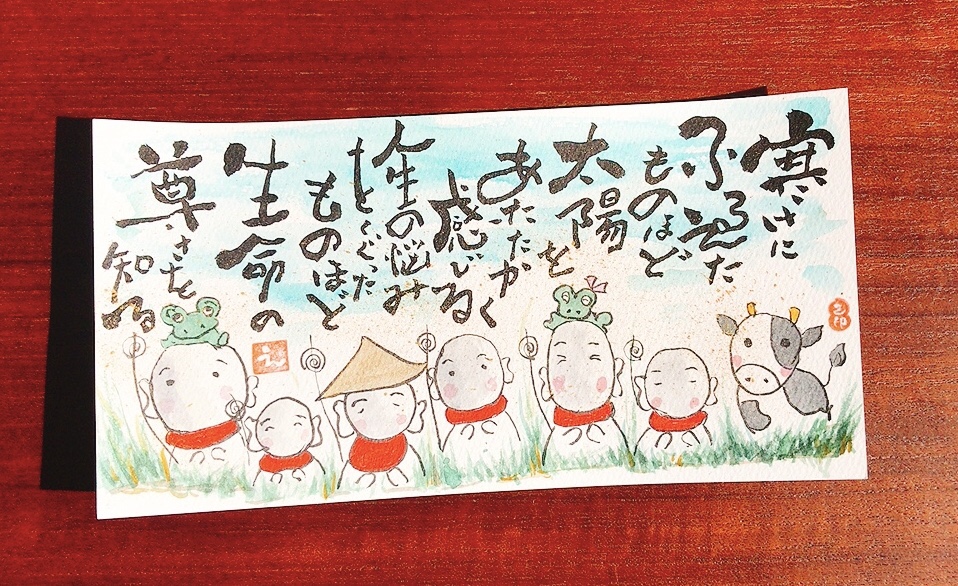 寒さに
ふるえた
ものほど
太陽を
あたたかく
感じる
人生の悩み
をくぐった
ものほど
生命の
尊さを
知る